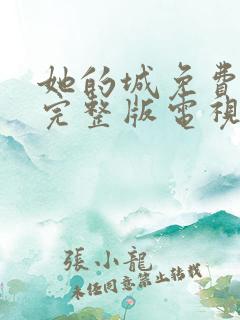 她的城免費
完整版電視
張小龍
未經同意禁止轉載